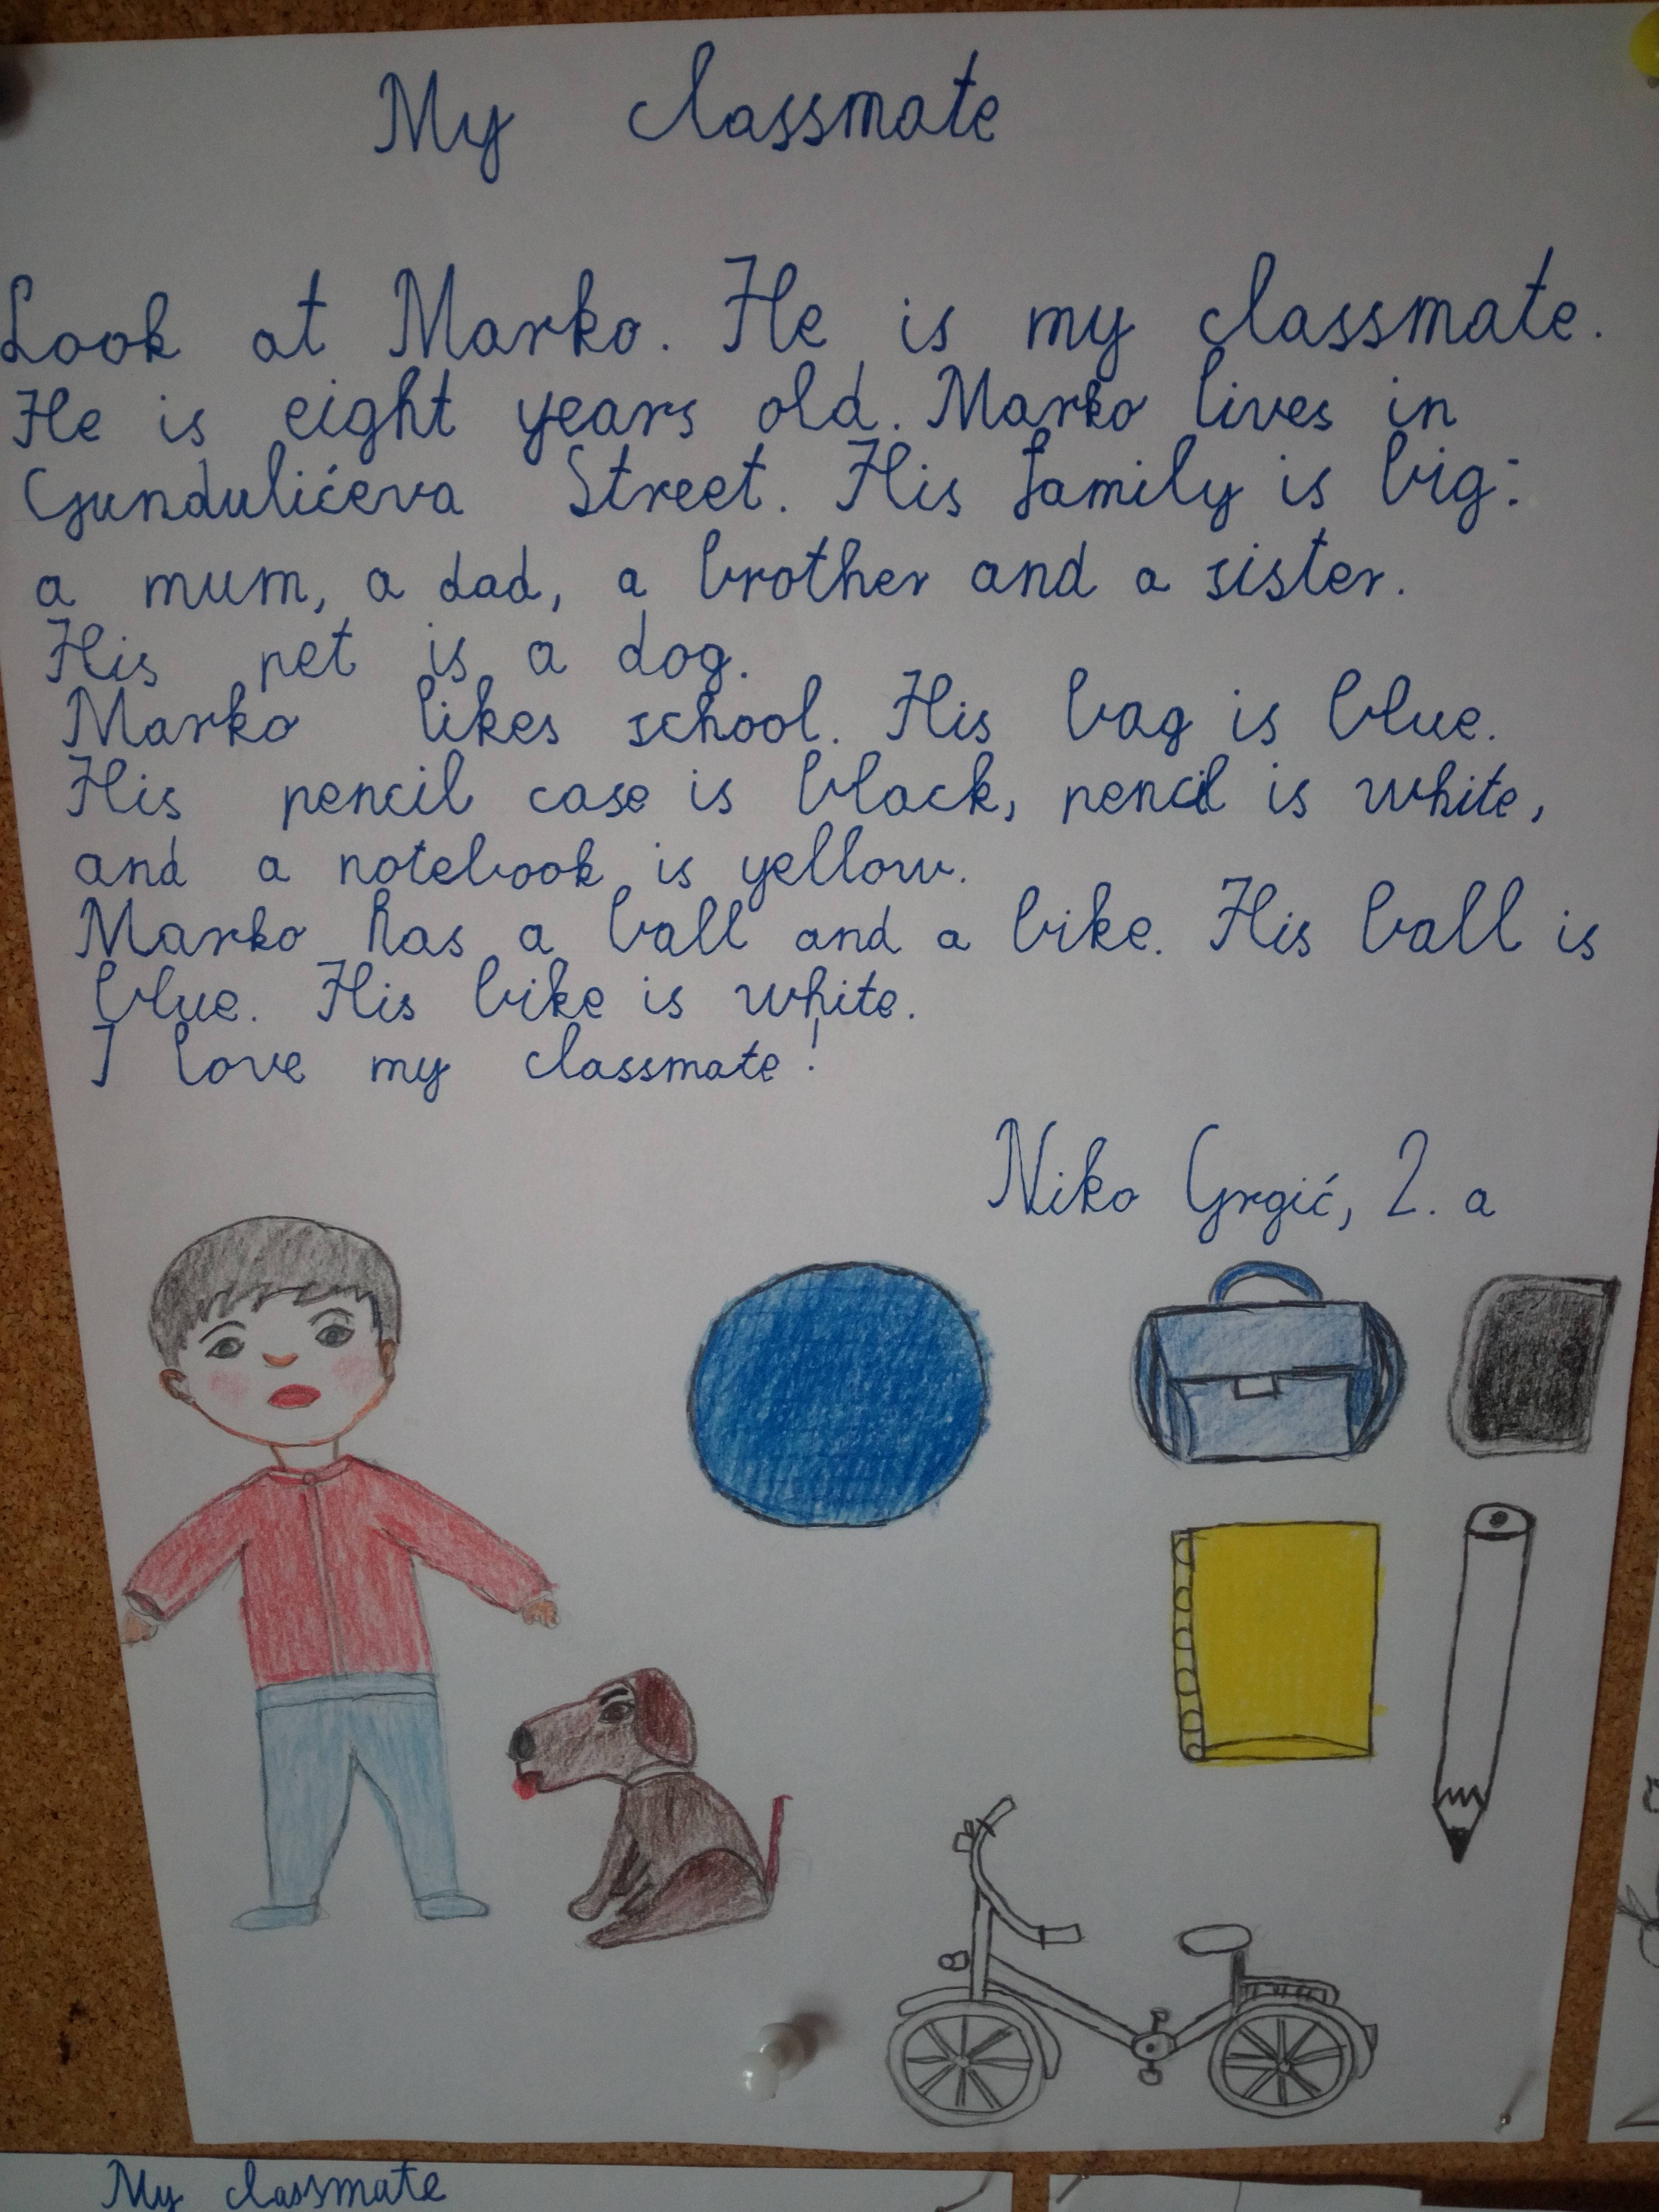 My classmate
Look at Marko. He is my classmate.
He is eight years old. Marko lives in
Gundulićeva Street. His family is big:
a mum, a dad, a brother and a sister.
His pet is a dog.
Marko likes school. His bag is blue.
His pencil case is black, pencil is white,
and a notebook is yellow.
Marko has a ball and a bike. His ball is
blue. His bike is white.
I love my classmate!
Niko Grgić, 2. a
My classmate